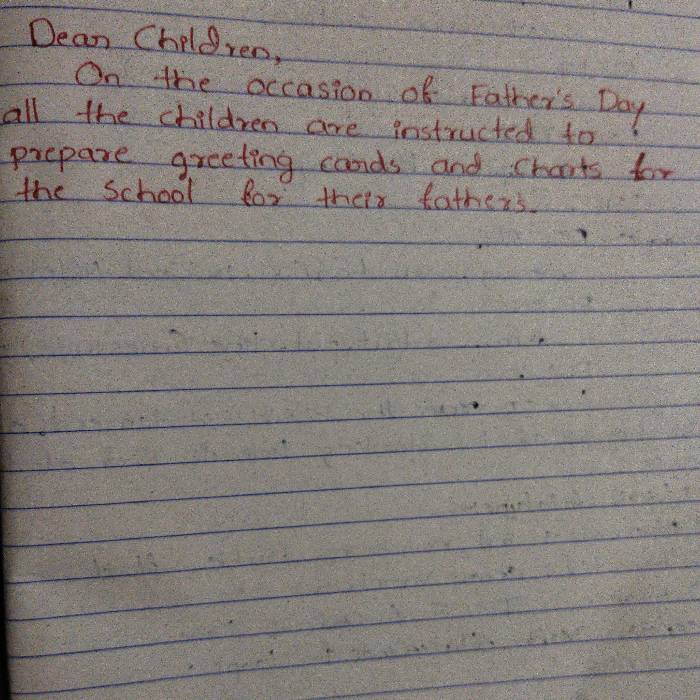 Dear Children,
On the occasion of Father's Day
all the children are instructed to
prepare greeting cards and charts for
the school for their fathers.